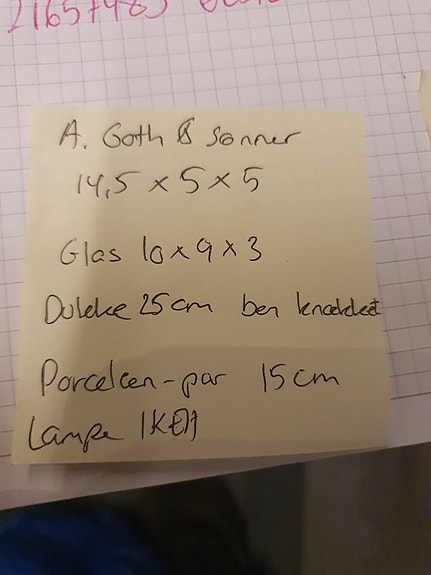 A. Goth & Sønner
14,5 x 5 x 5
Glas 10 x 9 x 3
Dukke 25 cm ben knækket
Porcelæn-par 15 cm
Lampe IKEA